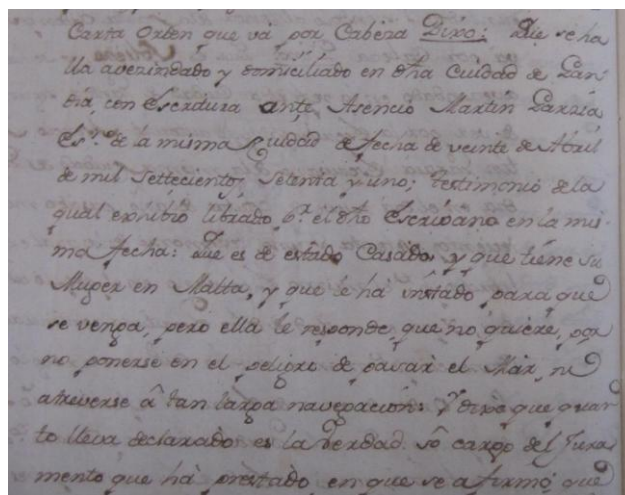 Carta Orden que vá por Cabeza Dixo: Que se ha
lla avezindado y domiciliado en dha Ciudad de Gan
dia con Escritura ante Asencio Martin Garzia
Es.no de la misma Ciudad de fecha de veinte de Abril
de mil Settecientos Setenta y uno; testimonio de la
qual exhibió librado p.r el dho Escrivano en la mis
ma fecha: Que es de estado Casado, y que tiene su
Muger en Malta, y que le há instado para que
se venga, pero ella le responde, que no quiere, por
no ponerse en el peligro de pasar el Mar, ni
atreverse á tan larga navegacion: Y dixo que quan
to lleva declarado es la Verdad só cargo del Jura
mento que há prestado en que se afirmó que